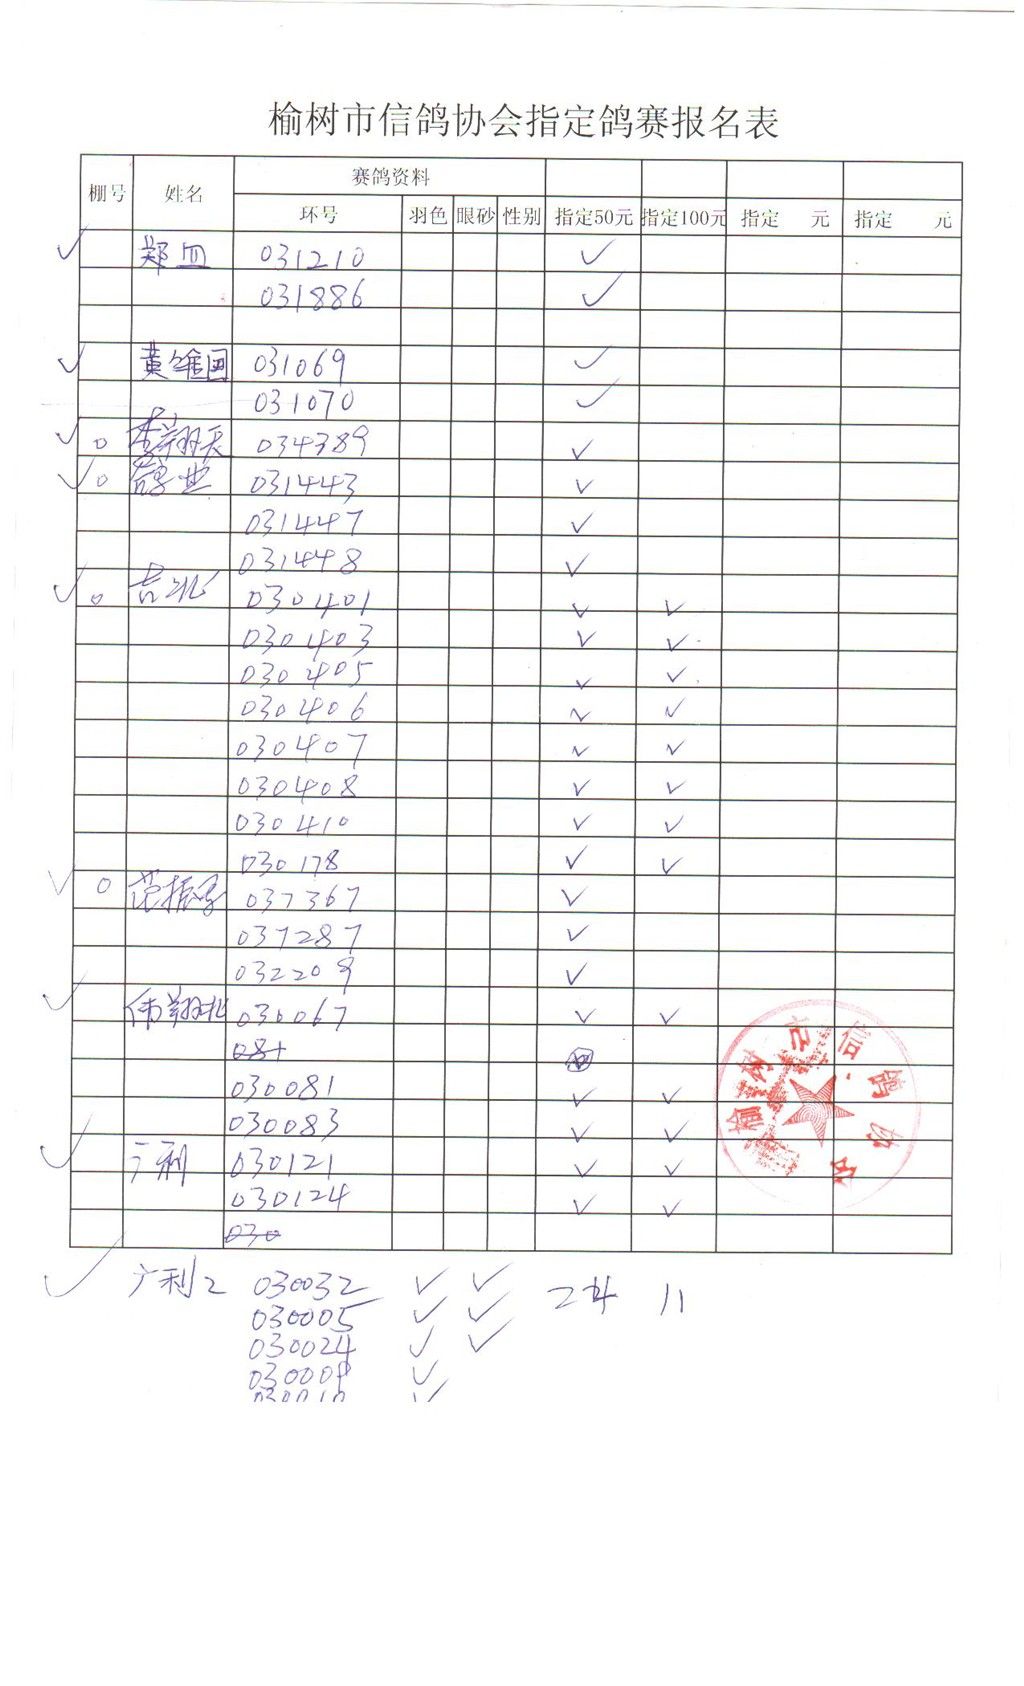 榆树市信鸽协会指定鸽赛报名表
棚号 姓名 赛鸽资料
环号 羽色 眼砂 性别 指定50元 指定100元 指定 元 指定 元
✓ 郑 031210 ✓
031886 ✓
✓ 黄 031069 ✓
031070 ✓
✓ 0 李翔天 034389 ✓
✓ 0 031443 ✓
031447 ✓
031448 ✓
✓ 0 吉北 030401 ✓ ✓
030403 ✓ ✓
030405 ✓ ✓
030406 ✓ ✓
030407 ✓ ✓
030408 ✓ ✓
030410 ✓ ✓
030178 ✓ ✓
✓ 0 范振 037367 ✓
037287 ✓
032209 ✓
✓ 伟翔北 030067 ✓ ✓
081
030081 ✓ ✓
030083 ✓ ✓
✓ 广利 030121 ✓ ✓
030124 ✓ ✓
030
✓ 广利2 030032 ✓ ✓
030005 ✓ ✓
030024 ✓ ✓
030009 ✓
030010 ✓
榆树市信鸽协会